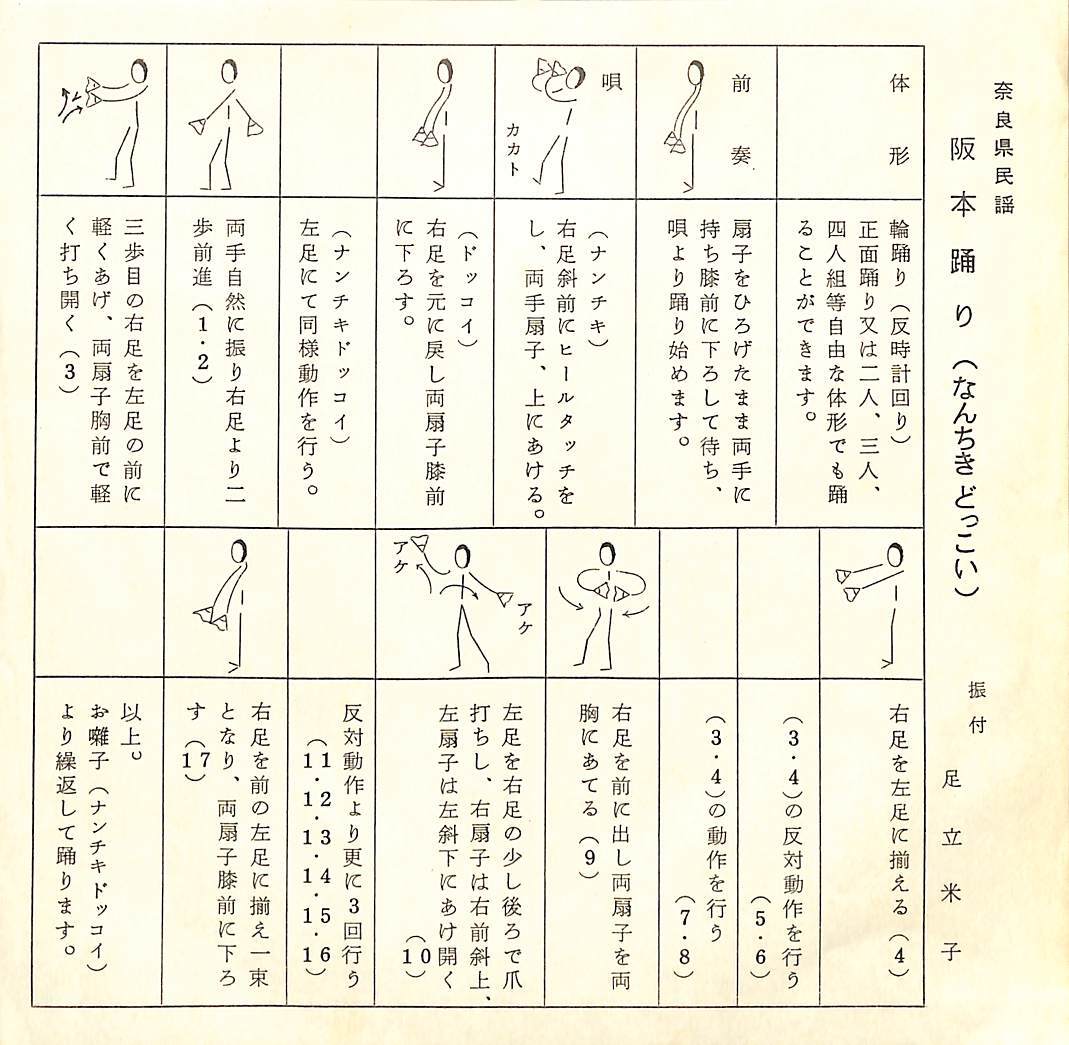 奈良県民謡
阪本踊り（なんちきどっこい）
振付
足立米子
体形
輪踊り（反時計回り）
正面踊り又は二人、三人、
四人組等自由な体形でも踊
ることができます。
前奏
扇子をひろげたまま両手に
持ち膝前に下ろして待ち、
唄より踊り始めます。
唄
カカト
（ナンチキ）
右足斜前にヒールタッチを
し、両手扇子、上にあける。
（ドッコイ）
右足を元に戻し両扇子膝前
に下ろす。
（ナンチキドッコイ）
左足にて同様動作を行う。
両手自然に振り右足より二
歩前進（1・2）
三歩目の右足を左足の前に
軽くあげ、両扇子胸前で軽
く打ち開く（3）
右足を左足に揃える（4）
（3・4）の反対動作を行う
（5・6）
（3・4）の動作を行う
（7・8）
右足を前に出し両扇子を両
胸にあてる（9）
アケ
アケ
左足を右足の少し後ろで爪
打ちし、右扇子は右前斜上、
左扇子は左斜下にあけ開く
（10）
反対動作より更に3回行う
（11・12・13・14・15・16）
右足を前の左足に揃え一束
となり、両扇子膝前に下ろ
す（17）
以上。
お囃子（ナンチキドッコイ）
より繰返して踊ります。